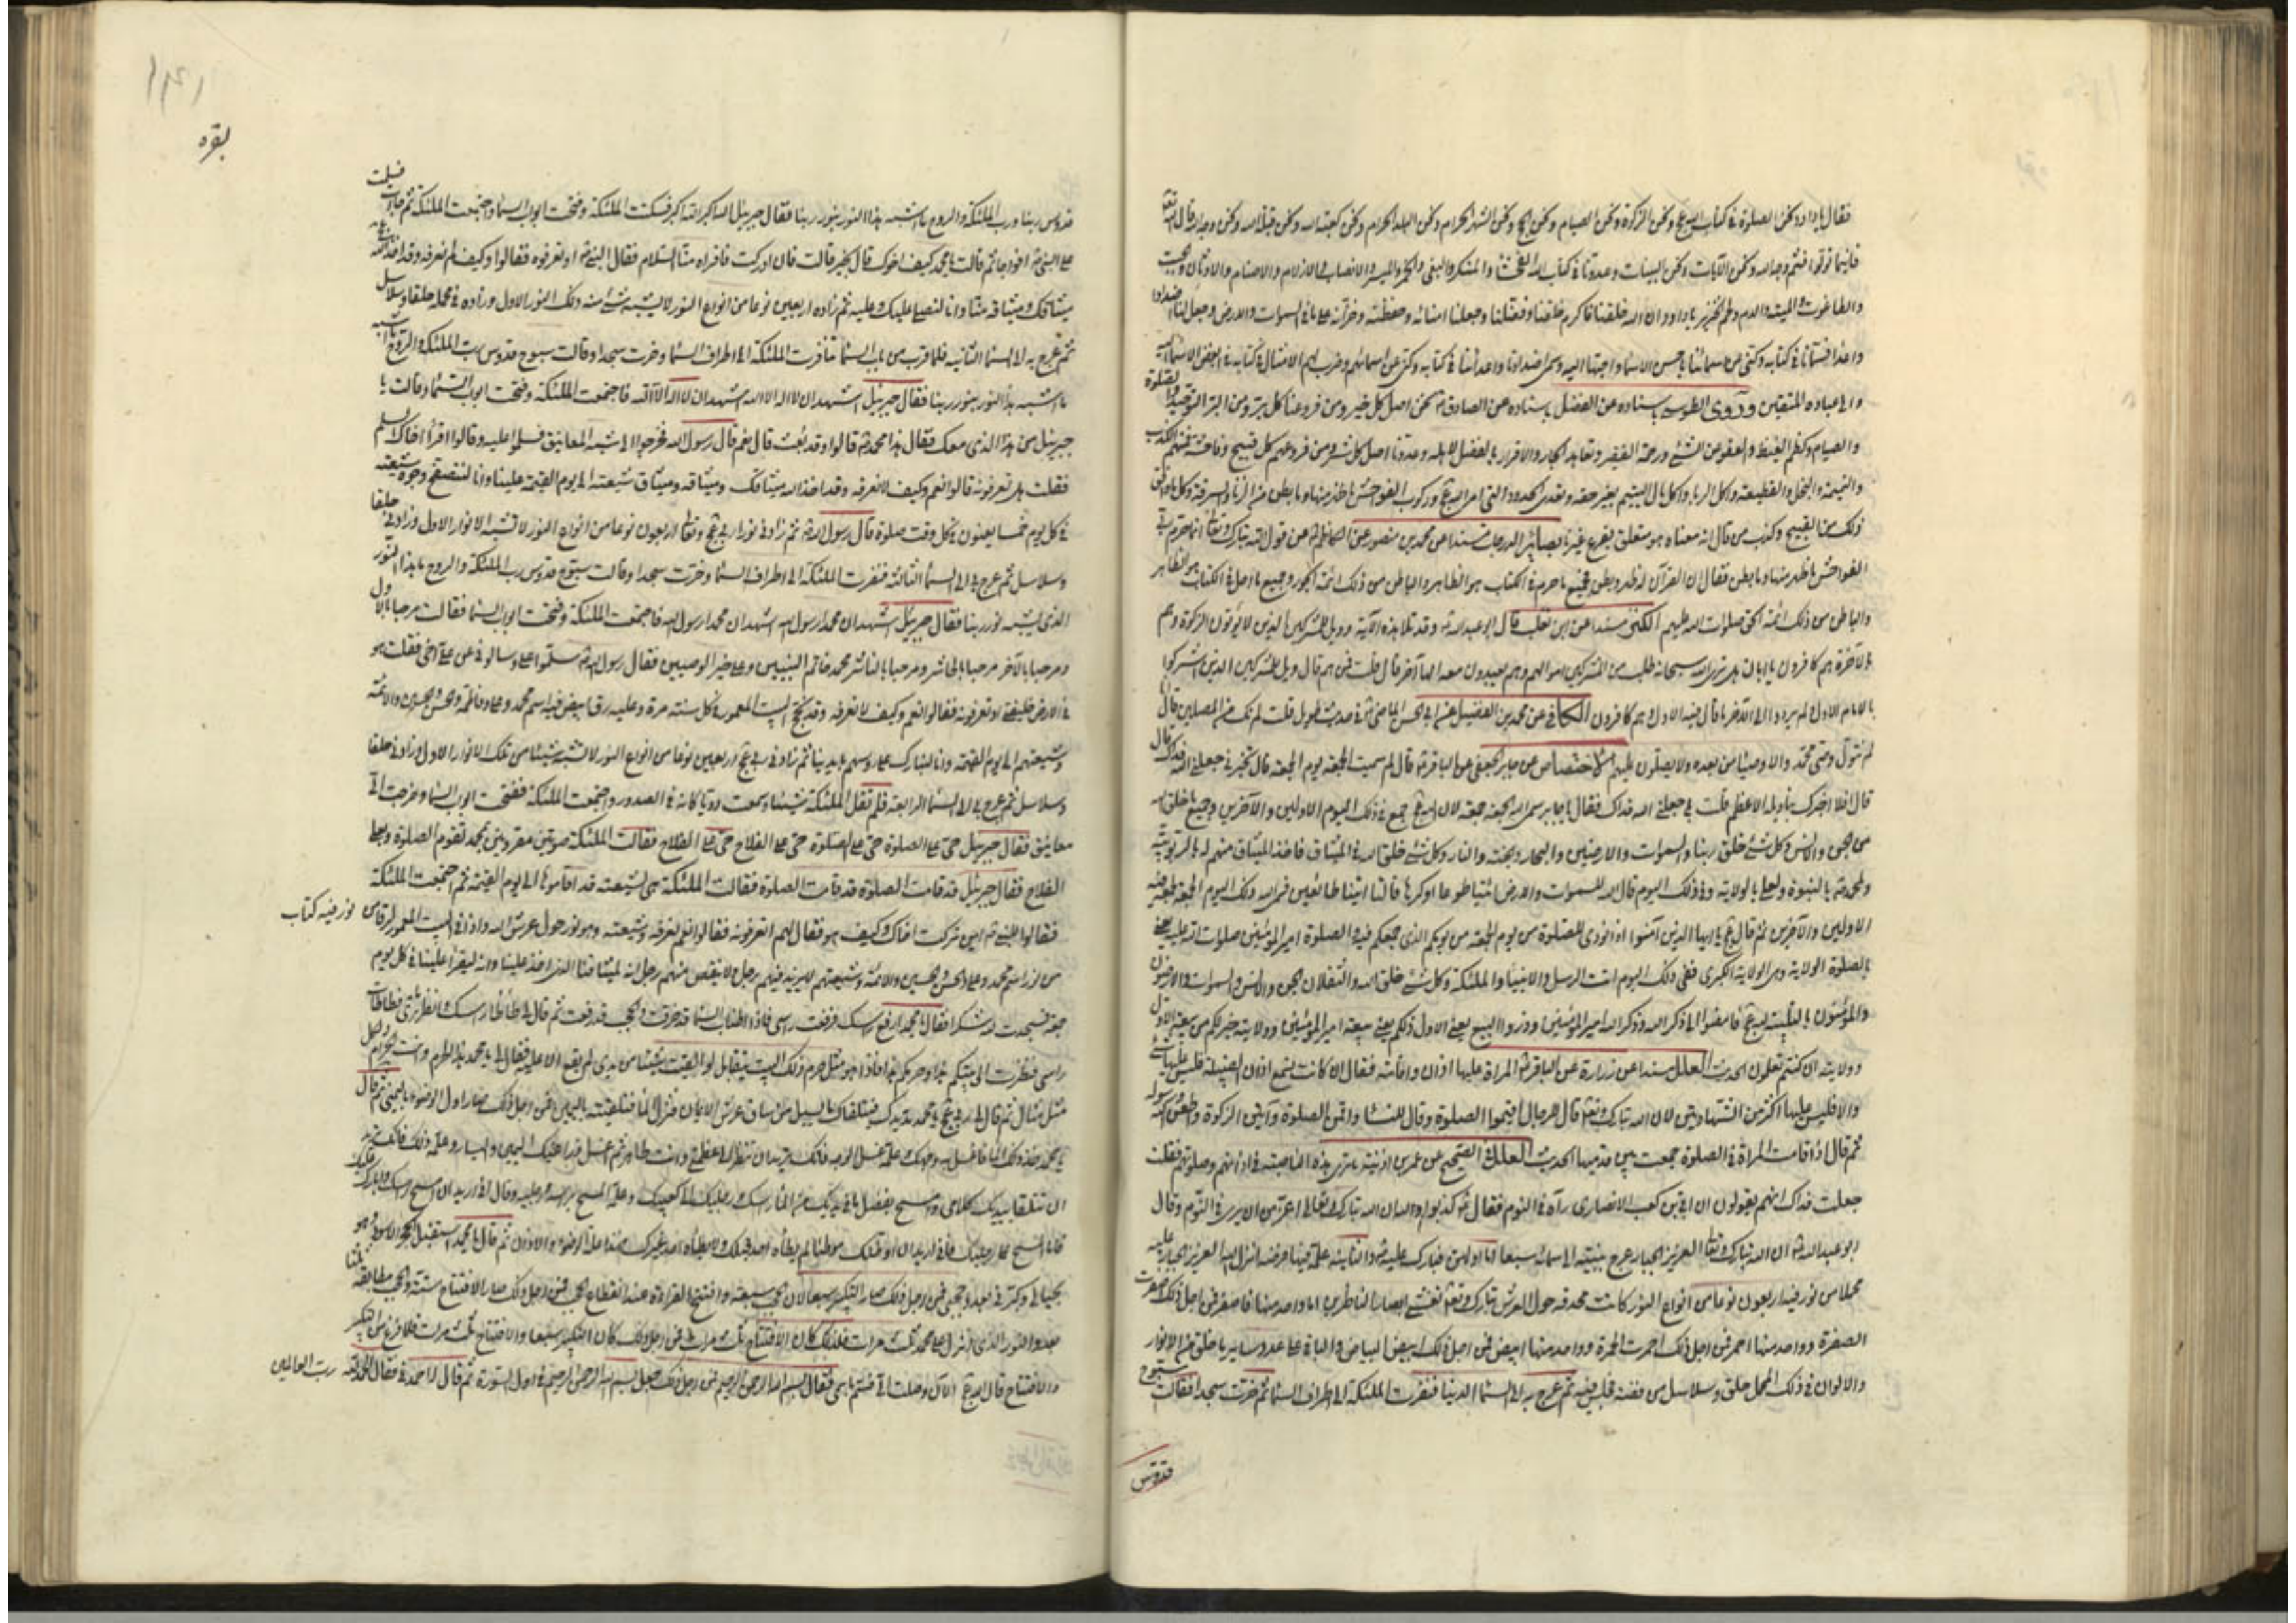 فقال يا داود نحن الصلوة في كتاب الله عج ونحن الزكوة ونحن الصيام ونحن الحج ونحن الشهر الحرام ونحن البلد الحرام ونحن كعبة الله ونحن قبلة الله ونحن وجه الله قال الله تعه
فاينما تولوا فثم وجه الله ونحن الآيات ونحن البينات وعدونا في كتاب الله الفحشا والمنكر والبغى والخمر والميسر والانصاب والازلام والاصنام والاوثان والجبت
والطاغوت والميتة والدم ولحم الخنزير يا داود ان الله خلقنا فاكرم خلقنا وفضلنا وجعلنا امنائه وحفظته وخزانه على ما في السموات والارض وجعل لنا اضدادا
واعداء فسمانا في كتابه وكنى عن اسمائنا باحسن الاسما واحبها اليه وسمى اضدادنا واعدائنا في كتابه وكنى عن اسمائهم وضرب لهم الامثال في كتابه في ابغض الاسما اليه
والى عباده المتقين وروى الطوسى باسناده عن الفضل باسناده عن الصادق نحن اصل كل خير ومن فروعنا كل بر ومن البر التوحيد والصلوة
والصيام وكظم الغيظ والعفو عن المسئ ورحمة الفقير وتعاهد الجار والاقرار بالفضل لاهله وعدونا اصل كل شر ومن فروعهم كل قبيح وفاحشة فمنهم الكذب
والنميمة والبخل والقطيعة واكل الربا واكل مال اليتيم بغير حقه وتعدى الحدود التى امر الله عج وركوب الفواحش ما ظهر منها وما بطن من الزنا والسرقة وكل ما وافق
ذلك من القبيح وكذب من قال انه معنا وهو متعلق بفرع غيرنا بصائر الدرجات مسندا عن محمد بن منصور عن الكاظم عن قول الله تبارك وتعالى انما حرم ربى
الفواحش ما ظهر منها وما بطن فقال ان القرآن له ظهر وبطن فجميع ما حرم في الكتاب هو الظاهر والباطن من ذلك ائمة الجور وجميع ما احل في الكتاب هو الظاهر
والباطن من ذلك ائمة الحق صلوات الله عليهم الكنز مسندا عن ابن تغلب قال ابو عبد الله وقد تلا هذه الآية وويل للمشركين الذين لا يؤتون الزكوة وهم
بالآخرة هم كافرون يا ابان هل ترى الله سبحانه طلب من المشركين اموالهم وهم يعبدون معه الها آخر قال قلت فمن هم قال ويل للمشركين الذين اشركوا
بالامام الاول ولم يردوا الى الآخر ما قال فيه الاول وهم كافرون الكافى عن محمد بن الفضيل عن ابى الحسن الماضى في حديث طويل قلت لم نك من المصلين قال انا
لم نتول وصى محمد والاوصيا من بعده ولا يصلون عليهم الاختصاص عن جابر الجعفى عن الباقر قال لم سميت الجمعة يوم الجمعة قال تخبرنى جعلنى الله فداك قال
قال افلا اخبرك بتأويله الاعظم قلت بلى جعلنى الله فداك فقال يا جابر سمى الله الجمعة جمعة لان الله عج جمع في ذلك اليوم الاولين والآخرين وجميع ما خلق الله
من الجن والانس وكل شئ خلق ربنا والسموات والارضين والبحار والجنة والنار وكل شئ خلق الله في الميثاق فاخذ الميثاق منهم له بالربوبية
ولمحمد بالنبوة ولعلى بالولاية وفى ذلك اليوم قال الله للسموات والارض ائتيا طوعا او كرها قالتا اتينا طائعين فسمى الله ذلك اليوم الجمعة لجمعه فيه
الاولين والآخرين ثم قال عج يا ايها الذين آمنوا اذا نودى للصلوة من يوم الجمعة من يومكم الذى جمعكم فيه والصلوة امير المؤمنين صلوات الله عليه يعنى
بالصلوة الولاية وهى الولاية الكبرى ففى ذلك اليوم اتت الرسل والانبيا والملئكة وكل شئ خلق الله والثقلان الجن والانس والسموات والارضون
والمؤمنون بالتلبية لله عج فامضوا الى ذكر الله وذكر الله امير المؤمنين وذروا البيع يعنى الاول ذلكم يعنى بيعة امير المؤمنين وولايته خير لكم من بيعة الاول
وولايته ان كنتم تعلمون الحديث العلل مسندا عن زرارة عن الباقر المراة عليها اذان واقامة فقال ان كانت تسمع اذان القبيلة فليس عليها شئ
والا فليس عليها اكثر من الشهادتين لان الله تبارك وتعه قال للرجال اقيموا الصلوة وقال للنسا واقمن الصلوة وآتين الزكوة واطعن الله ورسوله
ثم قال اذا قامت المراة في الصلوة جمعت بين قدميها الحديث العلل في الصحيح عن عمر بن اذينة ما ترى هذه الناصبة في اذانهم وصلوتهم فقلت
جعلت فداك انهم يقولون ان ابى بن كعب الانصارى رآه في النوم فقال كذبوا والله ان الله تبارك وتعالى اعز من ان يرى في النوم وقال
ابو عبد الله ان الله تبارك وتعا العزيز الجبار عرج بنبيه الى سمائه سبعا اما اوليهن فبارك عليه والثانية علمه فيها فرضه انزل الله العزيز الجبار عليه
محملا من نور فيه اربعون نوعا من انواع النور كانت محدقة حول العرش تبارك وتعه تغشى ابصار الناظرين اما واحد منها فاصفر فمن اجل ذلك اصفرت
الصفرة وواحد منها احمر فمن اجل ذلك احمرت الحمرة وواحد منها ابيض فمن اجل ذلك ابيض البياض والباقى على عدد ساير ما خلق من الانوار
والالوان في ذلك المحمل حلق وسلاسل من فضة فجلس فيه ثم عرج به الى السما الدنيا فنفرت الملئكة الى اطراف السما ثم خرت سجدا فقالت سبوح
قدوس
بقره
قدوس ربنا ورب الملئكة والروح ما اشبه هذا النور بنور ربنا فقال جبرئيل الله اكبر الله اكبر فسكتت الملئكة وفتحت ابواب السما واجتمعت الملئكة ثم جائت فسلمت
على النبى افواجا ثم قالت يا محمد كيف اخوك قال بخير قالت فان ادركته فاقراه منا السلام فقال النبى اوتعرفوه فقالوا وكيف لم نعرفه وقد اخذ الله عج
ميثاقك وميثاقه منا وانا لنصلى عليك وعليه ثم زاده اربعين نوعا من انواع النور لا يشبه شئ منه ذلك النور الاول وزاده في محمله حلقا وسلاسل
ثم عرج به الى السما الثانية فلما قرب من باب السما تنافرت الملئكة الى اطراف السما وخرت سجدا وقالت سبوح قدوس رب الملئكة والروح
ما اشبه هذا النور بنور ربنا فقال جبرئيل اشهد ان لا اله الا الله اشهد ان لا اله الا الله فاجتمعت الملئكة وفتحت ابواب السما وقالت يا
جبرئيل من هذا الذى معك فقال هذا محمد قالوا وقد بعث قال نعم قال رسول الله فخرجوا الى شبه المعانيق فسلموا عليه وقالوا اقرأ اخاك السلم
فقلت هل تعرفونه قالوا نعم وكيف لا نعرفه وقد اخذ الله ميثاقك وميثاقه وميثاق شيعته الى يوم القيمة علينا وانا لنتصفح وجوه شيعته
في كل يوم خمسا يعنون في كل وقت صلوة قال رسول الله ثم زادنى ربى عج وتعا اربعون نوعا من انواع النور لا تشبه الانوار الاول وزادنى حلقا
وسلاسل ثم عرج بى الى السما الثالثة فنفرت الملئكة الى اطراف السما وخرت سجدا وقالت سبوح قدوس رب الملئكة والروح ما هذا النور
الذى يشبه نور ربنا فقال جبرئيل اشهد ان محمدا رسول الله اشهد ان محمدا رسول الله فاجتمعت الملئكة وفتحت ابواب السما فقالت مرحبا بالاول
ومرحبا بالآخر مرحبا بالحاشر ومرحبا بالناشر محمد خاتم النبيين وعلى خير الوصيين فقال رسول الله سلموا على وسالونى عن على اخى فقلت هو
في الارض خليفتى اوتعرفونه فقالوا نعم وكيف لا نعرفه وقد نحج البيت المعمور في كل سنة مرة وعليه رق ابيض فيه اسم محمد وعلى وفاطمة والحسن والحسين والائمة
وشيعتهم الى يوم القيمة وانا لنبارك على رؤسهم بايدينا ثم زادنى ربى عج اربعين نوعا من انواع النور لا تشبه شيئا من تلك الانوار الاول وزادنى حلقا
وسلاسل ثم عرج بى الى السما الرابعة فلم تقل الملئكة شيئا وسمعت دويا كانه في الصدور واجتمعت الملئكة ففتحت ابواب السما وخرجت الى
معانيق فقال جبرئيل حى على الصلوة حى على الصلوة حى على الفلاح حى على الفلاح فقالت الملئكة صوتين مقرونين بمحمد تقوم الصلوة وبعلى
الفلاح فقال جبرئيل قد قامت الصلوة قد قامت الصلوة فقالت الملئكة هى لشيعته قد اقاموها الى يوم القيمة ثم اجتمعت الملئكة
فقالوا للنبى اين تركت اخاك وكيف هو فقال لهم اتعرفونه فقالوا نعم نعرفه وشيعته وهو نور حول عرش الله وان في البيت المعمور لرقا من نور فيه كتاب
من نور اسم محمد وعلى والحسن والحسين والائمة وشيعتهم لا يزيد فيهم رجل ولا ينقص منهم رجل انه لميثاقنا الذى اخذ علينا وانه ليقرأ علينا في كل يوم
جمعة فسجدت لله شكرا فقال يا محمد ارفع راسك فرفعت راسى فاذا اطناب السما قد خرقت والحجب قد رفعت ثم قال لى طأطأ راسك انظر ما ترى فطأطأت
راسى فنظرت الى بيتكم هذا وحرمكم هذا فاذا هو مثل حرم ذلك البيت يتقابل لو القيت شيئا من يدى لم يقع الا عليه فقال لى يا محمد هذا الحرم وانت الحرام ولكل
مثل مثال ثم قال لى ربى عج يا محمد مد يدك فيتلقاك ما يسيل من ساق عرش الايمن فنزل الما فتلقيته باليمين فمن اجل ذلك صار اول الوضوء باليمنى ثم قال
يا محمد خذ ذلك الما فاغسل به وجهك وعلمه غسل الوجه فانك تريد ان تنظر الى عظمتى وانت طاهر ثم اغسل ذراعيك اليمين واليسار وعلمه ذلك فانك تريد
ان تتلقا بيديك كلامى وامسح بفضل ما في يديك من الما راسك ورجليك الى كعبيك وعلمه المسح براسه ورجليه وقال انى اريد ان امسح راسك وابارك عليك
فاما المسح على رجليك فانى اريد ان اوطئك موطئا لم يطأه احد قبلك ولا يطأه احد غيرك فهذا علة الوضوء والاذان ثم قال يا محمد استقبل الحجر الاسود وهو
بحيالى وكبرنى بعدد حجبى فمن اجل ذلك صار التكبير سبعا لان الحجب سبعة وافتتح القراءة عند انقطاع الحجب فمن اجل ذلك صار الافتتاح سنة والحجب مطابقة ثلثا
بعدد النور الذى انزل على محمد ثلث مرات فلذلك كان الافتتاح ثلث مرات فمن اجل ذلك كان التكبير سبعا والافتتاح ثلث مرات فلما فرغ من التكبير
والافتتاح قال الله عج الآن وصلت الى فسم باسمى فقال بسم الله الرحمن الرحيم فمن اجل ذلك جعل بسم الله الرحمن الرحيم في اول السورة ثم قال له احمدنى فقال الحمد لله رب العالمين